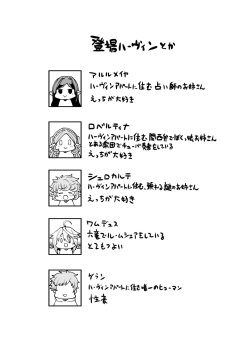 登場ハーヴィンとか
アルルメイヤ
ハーヴィンアパートに住む占い師のお姉さん
えっちが大好き
ロベルティナ
ハーヴィンアパートに住む関西弁でぼく娘お姉さん
とある楽団でキューバ奏者をしている
えっちが大好き
シェロカルテ
ハーヴィンアパートに住む、頼れる謎のお姉さん
えっちが大好き
ワムデュス
六竜でルームシェアをしている
とてもつよい
グラン
ハーヴィンアパートに住む唯一のヒューマン
性豪